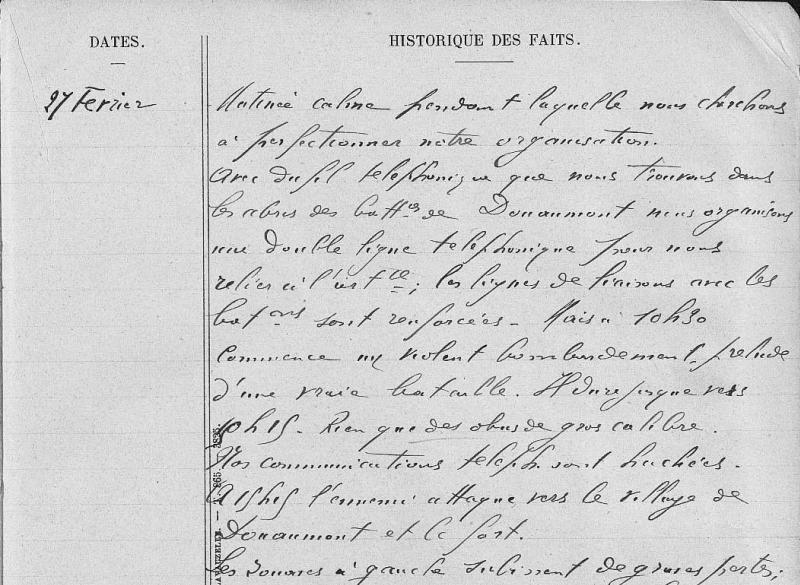 DATES.
HISTORIQUE DES FAITS.
27 Fevrier
Matinée calme pendant laquelle nous cherchons
à perfectionner notre organisation.
Avec du fil telephonique que nous trouvons dans
les abris des batt^ies de Douaumont nous organisons
une double ligne téléphonique pour nous
relier à l'art^ie; les lignes de liaisons avec les
bat^ons sont renforcées - Mais à 10h30
commence un violent bombardement, prelude
d'une vraie bataille. Il dure jusque vers
h15 - Rien que des obus de gros calibre.
Nos communications teleph. sont hachées.
A 15h15 l'ennemi attaque vers le village de
Douaumont et le fort.
Les zouaves à gauche subissent de graves pertes;